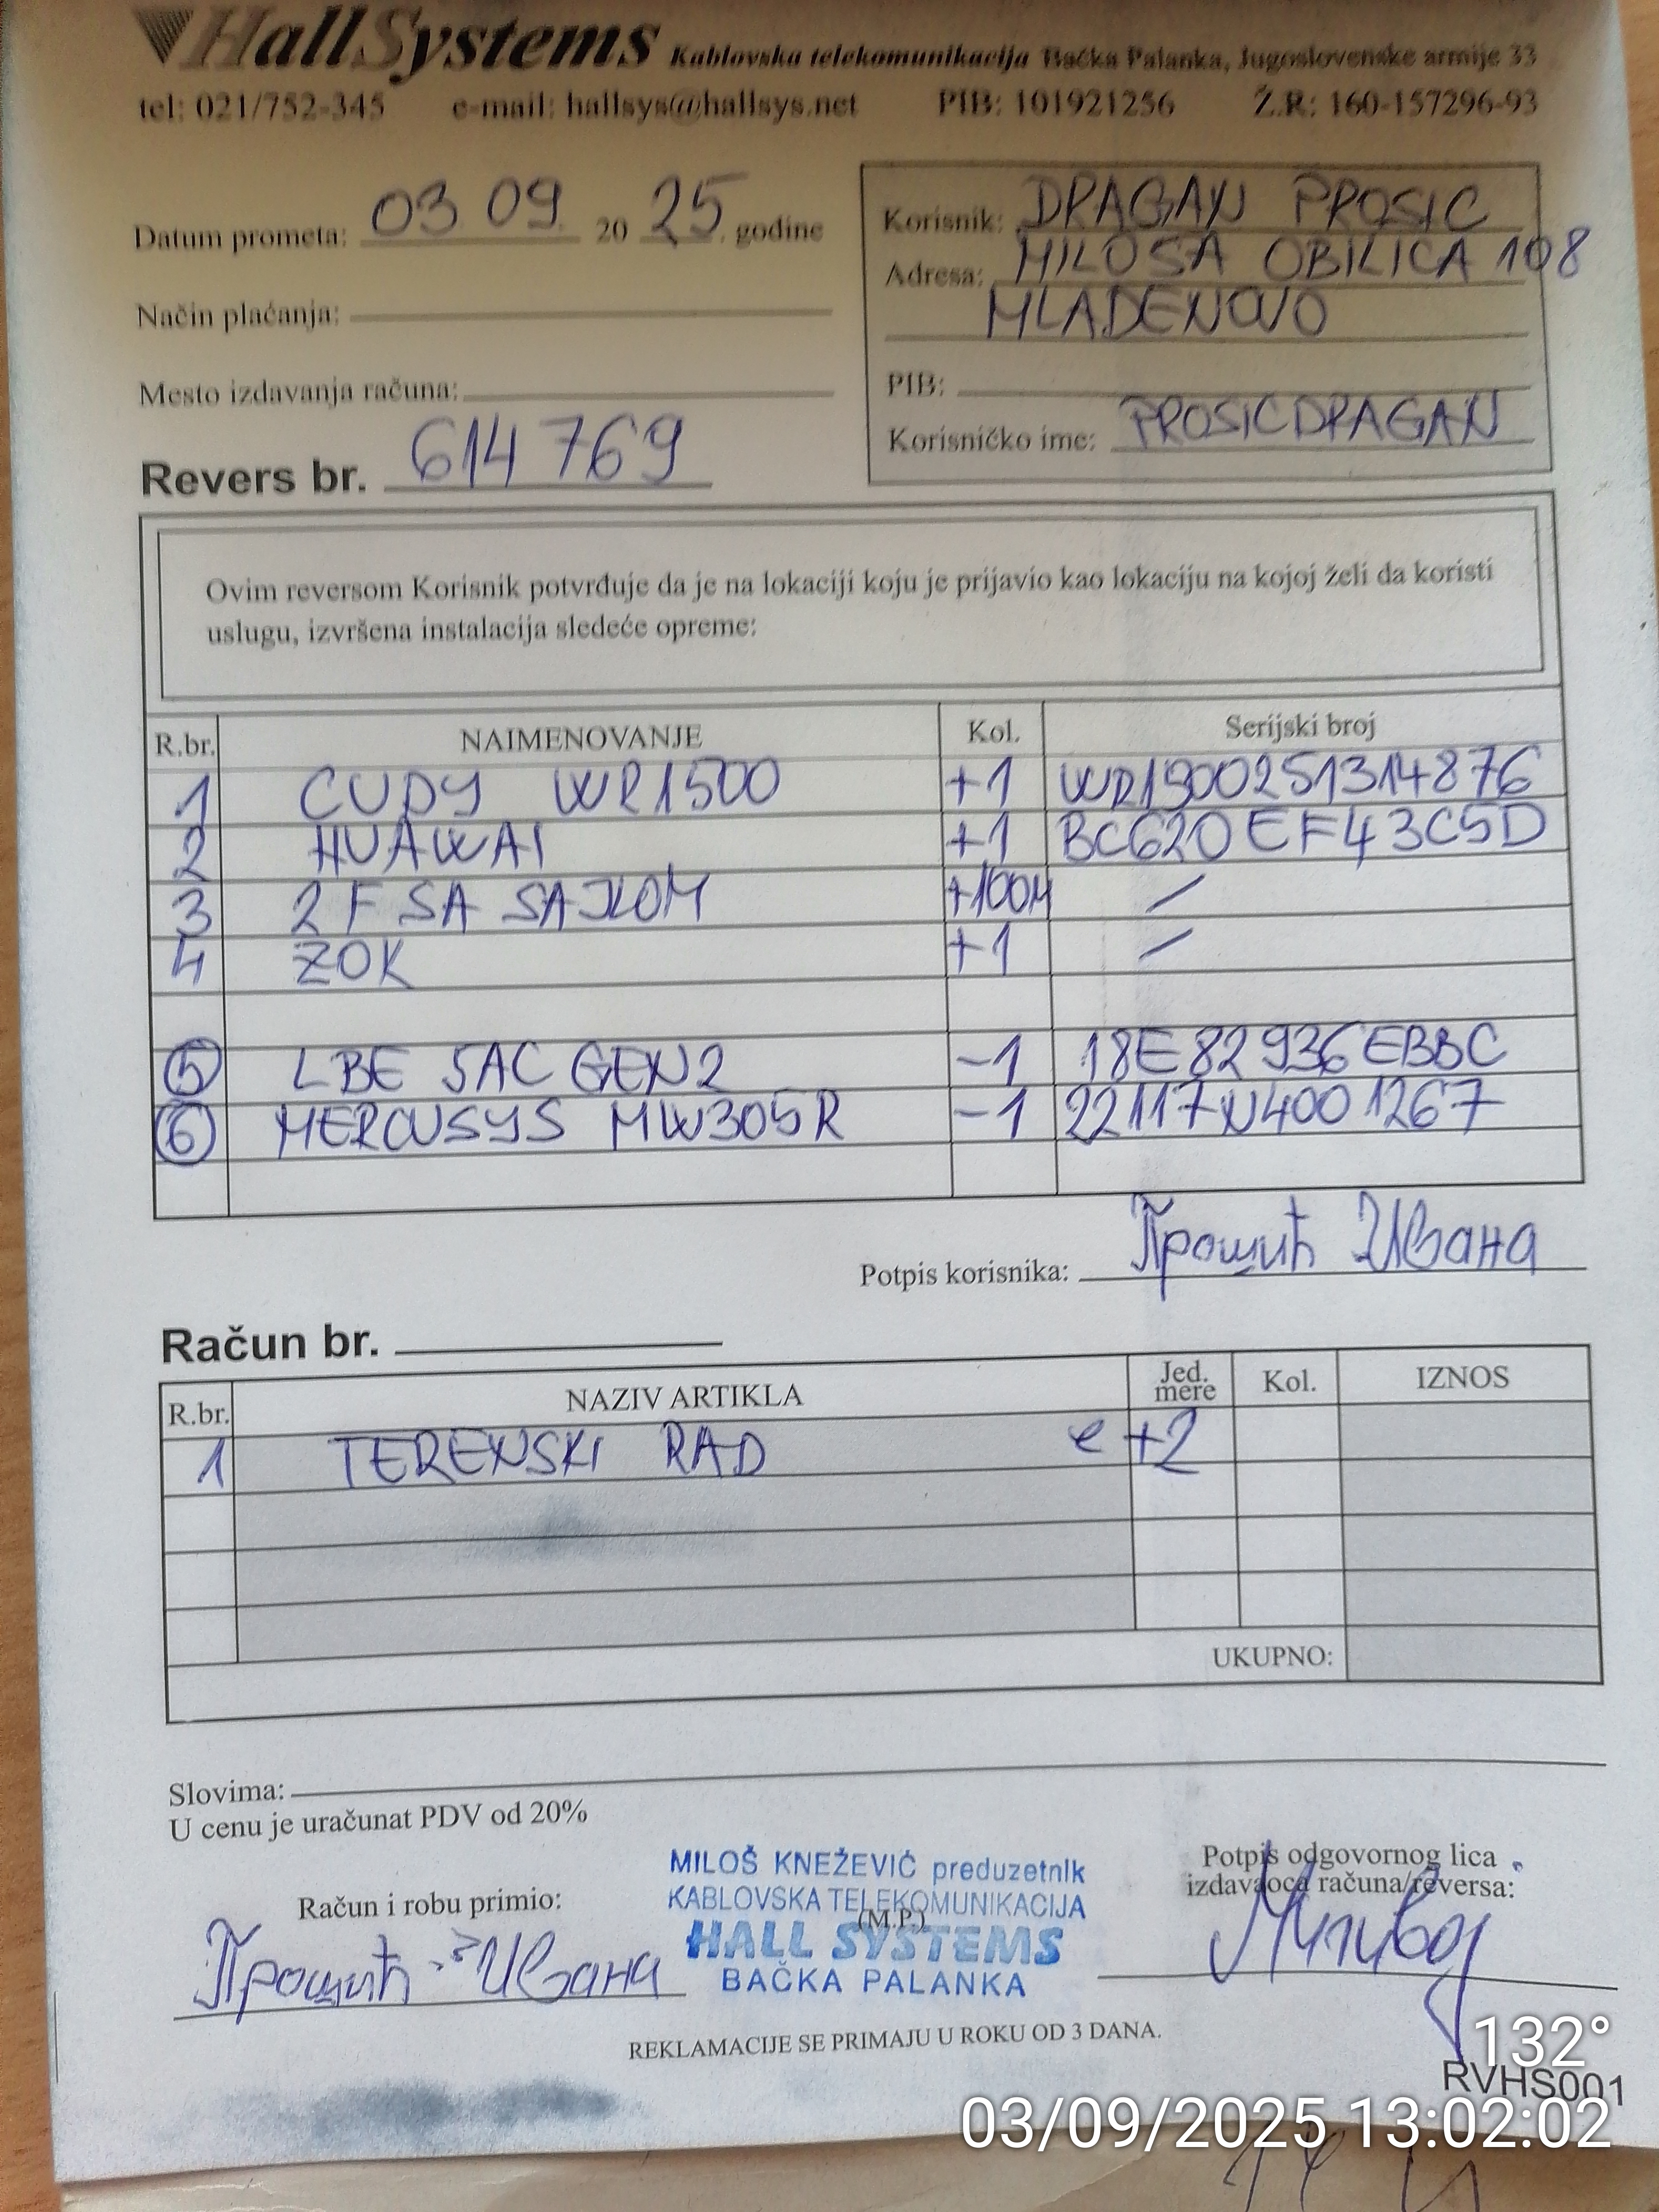 HallSystems Kablovska telekomunikacija Bačka Palanka, Jugoslovenske armije 33
tel: 021/752-345 e-mail: hallsys@hallsys.net PIB: 101921256 Ž.R: 160-157296-93
Datum prometa: 03 09. 20 25. godine
Način plaćanja:
Mesto izdavanja računa:
Revers br. 614769
Korisnik: DRAGAN PROSIC
Adresa: MILOSA OBILICA 108
MLADENOVO
PIB:
Korisničko ime: PROSICDRAGAN
Ovim reversom Korisnik potvrđuje da je na lokaciji koju je prijavio kao lokaciju na kojoj želi da koristi
uslugu, izvršena instalacija sledeće opreme:
R.br. NAIMENOVANJE Kol. Serijski broj
1 CUDY WR1500 +1 WR1500251314876
2 HUAWAI +1 BC620EF43C5D
3 2F SA SAJLOM +100M /
4 ZOK +1 /
5 LBE 5AC GEN2 -1 18E82936EBBC
6 MERCUSYS MW305R -1 22117N4001267
Potpis korisnika: Прошић Ивана
Račun br.
R.br. NAZIV ARTIKLA Jed. mere Kol. IZNOS
1 TERENSKI RAD e +2
UKUPNO:
Slovima:
U cenu je uračunat PDV od 20%
Račun i robu primio:
Прошић Ивана
MILOŠ KNEŽEVIĆ preduzetnik
KABLOVSKA TELEKOMUNIKACIJA
(M.P.)
HALL SYSTEMS
BAČKA PALANKA
Potpis odgovornog lica
izdavaoca računa/reversa:
REKLAMACIJE SE PRIMAJU U ROKU OD 3 DANA.
132°
RVHS001
03/09/2025 13:02:02